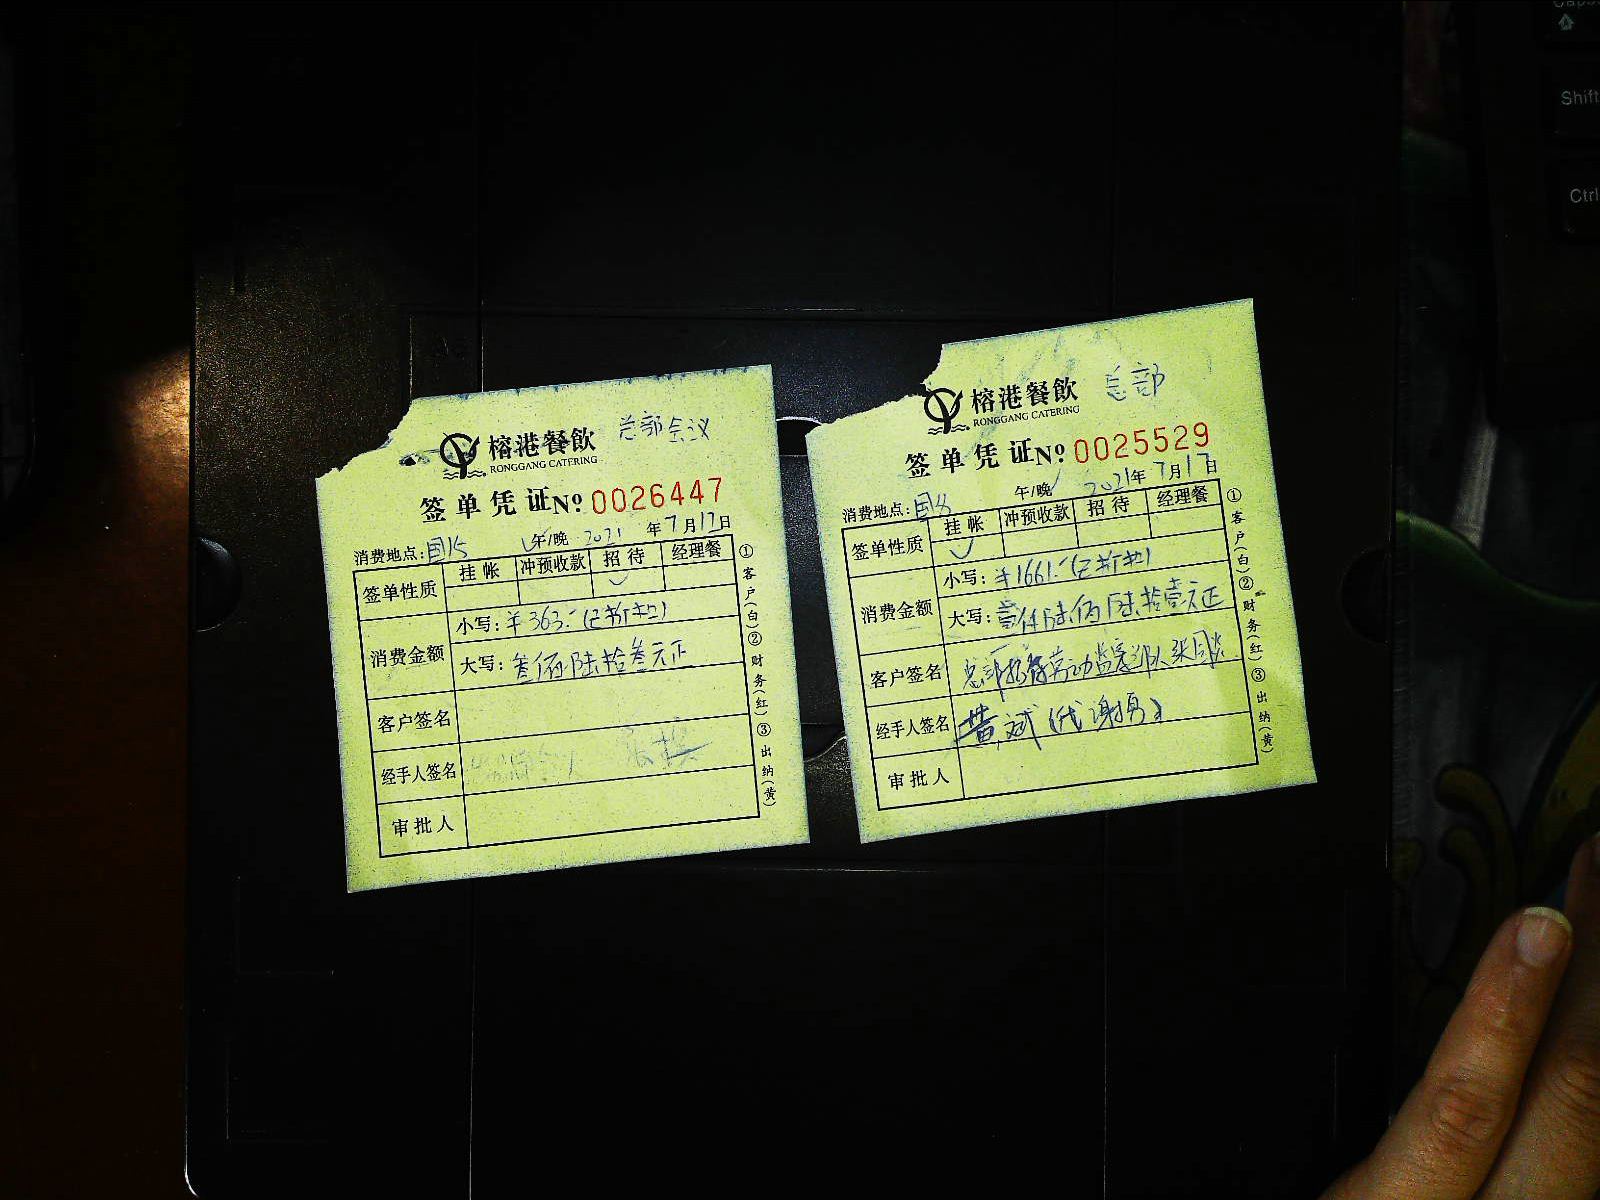 榕港餐飲 总部会议
RONGGANG CATERING
签单凭证№ 0026447
消费地点: 午/晚 2021年7月17日
签单性质 挂帐 冲预收款 招待 经理餐
消费金额
小写: ¥363.-(已折扣)
大写: 叁佰陆拾叁元正
客户签名
经手人签名
审批人
①客户(白)②财务(红)③出纳(黄)
榕港餐飲 总部
RONGGANG CATERING
签单凭证№ 0025529
消费地点: 午/晚 2021年7月17日
签单性质 挂帐 冲预收款 招待 经理餐
消费金额
小写: ¥1661.-(已折扣)
大写: 壹仟陆佰陆拾壹元正
客户签名 总部招待劳动监察部队
经手人签名 黄斌(代谢勇)
审批人
①客户(白)②财务(红)③出纳(黄)
Caps
Shift
Ctrl